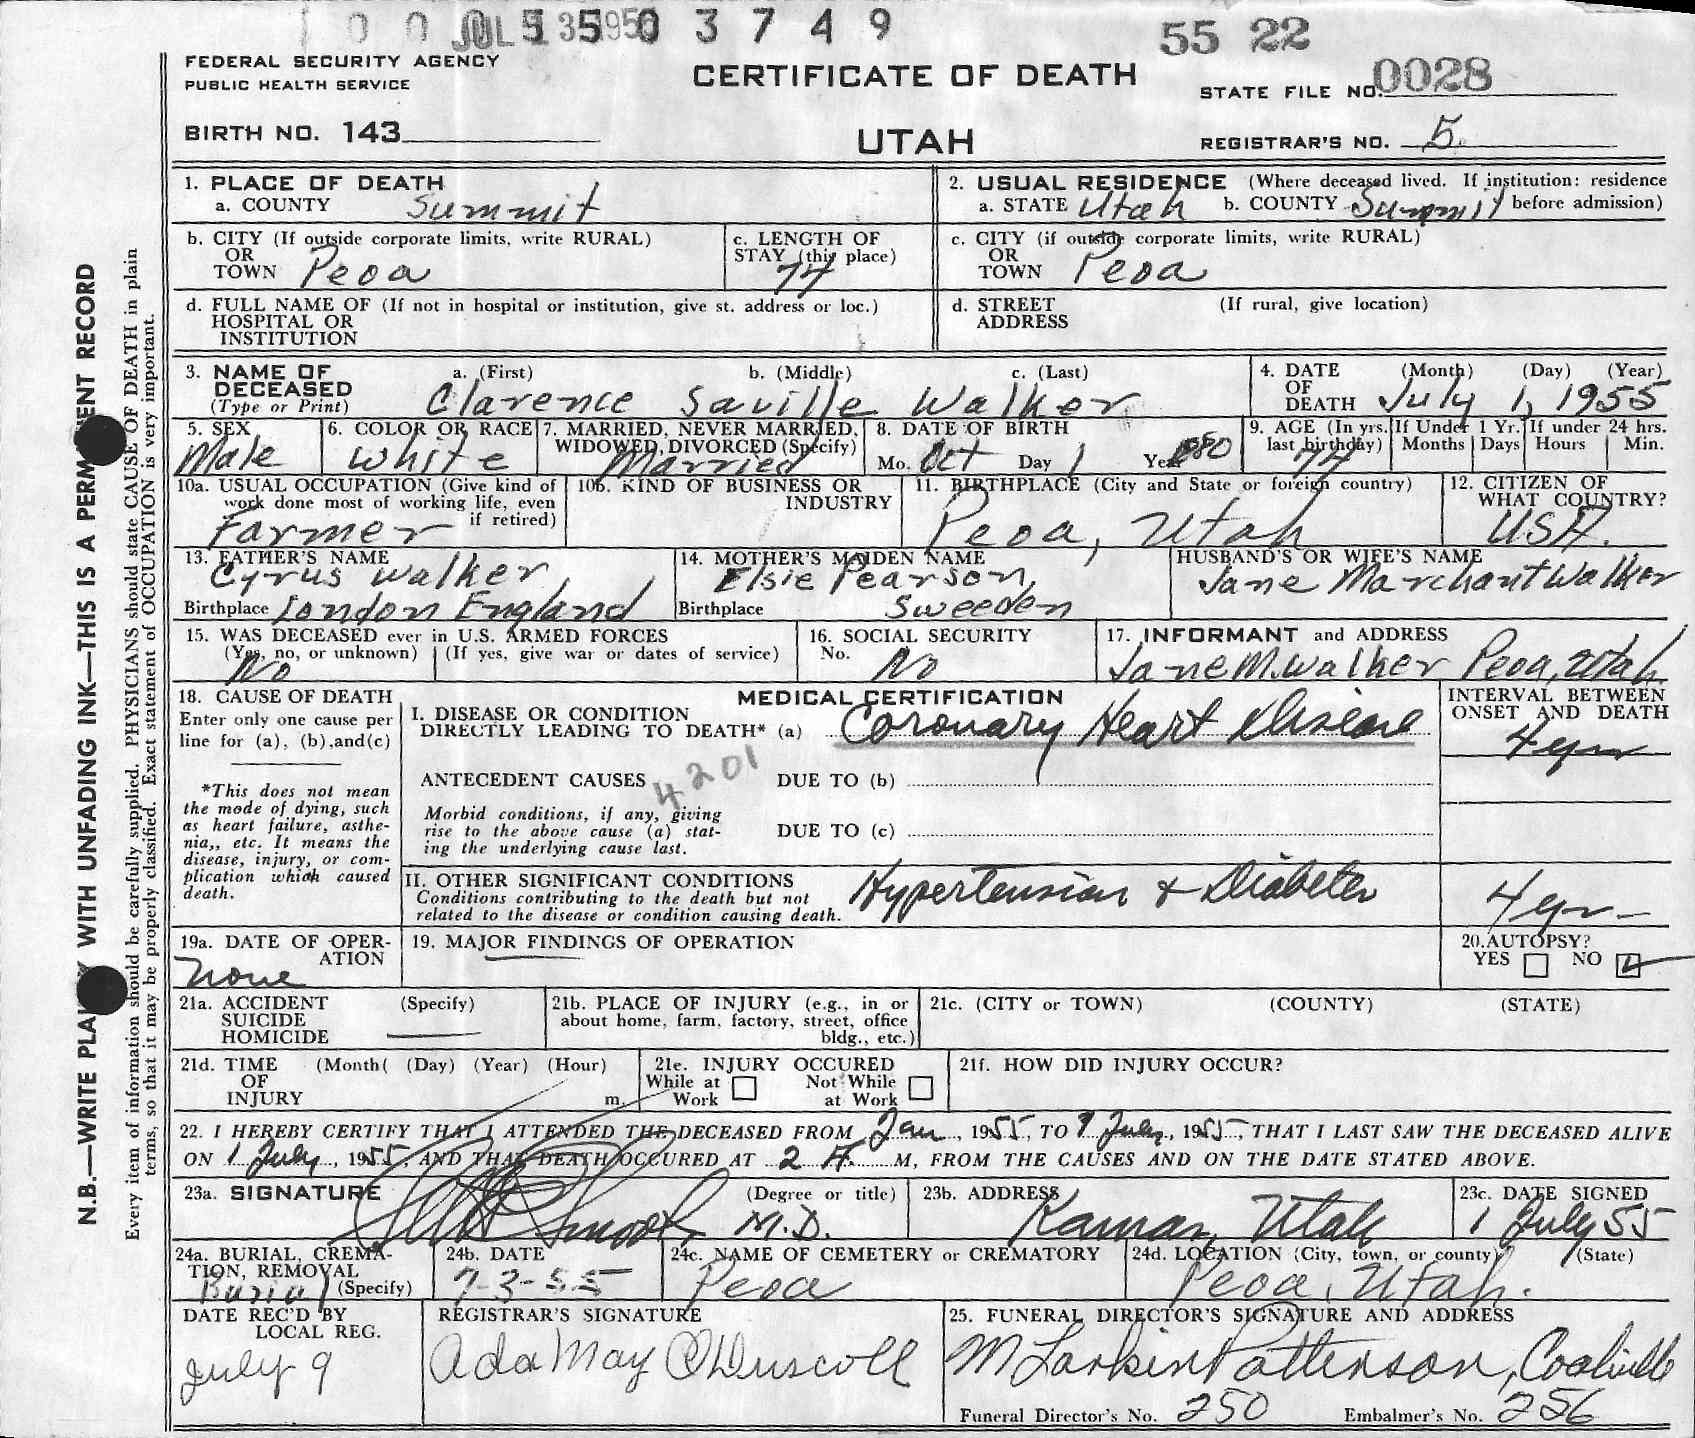 3 7 4 9
55 22
FEDERAL SECURITY AGENCY
PUBLIC HEALTH SERVICE
CERTIFICATE OF DEATH
STATE FILE NO. 0028
BIRTH NO. 143
UTAH
REGISTRAR'S NO. 5.
1. PLACE OF DEATH
a. COUNTY Summit
2. USUAL RESIDENCE (Where deceased lived. If institution: residence
a. STATE Utah b. COUNTY Summit before admission)
b. CITY (If outside corporate limits, write RURAL)
OR
TOWN Peoa
c. LENGTH OF
STAY (this place)
74
c. CITY (if outside corporate limits, write RURAL)
OR
TOWN Peoa
d. FULL NAME OF (If not in hospital or institution, give st. address or loc.)
HOSPITAL OR
INSTITUTION
d. STREET (If rural, give location)
ADDRESS
3. NAME OF a. (First) b. (Middle) c. (Last)
DECEASED
(Type or Print) Clarence Saville Walker
4. DATE (Month) (Day) (Year)
OF
DEATH July 1, 1955
5. SEX
Male
6. COLOR OR RACE
White
7. MARRIED, NEVER MARRIED,
WIDOWED, DIVORCED (Specify)
Married
8. DATE OF BIRTH
Mo. Oct Day 1 Year 1880
9. AGE (In yrs. If Under 1 Yr. If under 24 hrs.
last birthday) Months Days Hours Min.
74
10a. USUAL OCCUPATION (Give kind of
work done most of working life, even
if retired)
Farmer
10b. KIND OF BUSINESS OR
INDUSTRY
11. BIRTHPLACE (City and State or foreign country)
Peoa, Utah
12. CITIZEN OF
WHAT COUNTRY?
USA.
13. FATHER'S NAME
Cyrus Walker
Birthplace London England
14. MOTHER'S MAIDEN NAME
Elsie Pearson,
Birthplace Sweeden
HUSBAND'S OR WIFE'S NAME
Jane Marchant Walker
15. WAS DECEASED ever in U.S. ARMED FORCES
(Yes, no, or unknown) (If yes, give war or dates of service)
No
16. SOCIAL SECURITY
No. No
17. INFORMANT and ADDRESS
Jane M. Walker Peoa, Utah.
18. CAUSE OF DEATH
Enter only one cause per
line for (a), (b), and (c)
*This does not mean
the mode of dying, such
as heart failure, asthe-
nia,, etc. It means the
disease, injury, or com-
plication which caused
death.
MEDICAL CERTIFICATION
I. DISEASE OR CONDITION
DIRECTLY LEADING TO DEATH* (a) Coronary Heart Disease
INTERVAL BETWEEN
ONSET AND DEATH
4 yrs
4201
ANTECEDENT CAUSES DUE TO (b)
Morbid conditions, if any, giving
rise to the above cause (a) stat-
ing the underlying cause last.
DUE TO (c)
II. OTHER SIGNIFICANT CONDITIONS
Conditions contributing to the death but not
related to the disease or condition causing death.
Hypertension & Diabetes
4 yrs
19a. DATE OF OPER-
ATION
None
19. MAJOR FINDINGS OF OPERATION
20. AUTOPSY?
YES NO
21a. ACCIDENT (Specify)
SUICIDE
HOMICIDE
21b. PLACE OF INJURY (e.g., in or
about home, farm, factory, street, office
bldg., etc.)
21c. (CITY or TOWN) (COUNTY) (STATE)
21d. TIME (Month( (Day) (Year) (Hour)
OF
INJURY m.
21e. INJURY OCCURED
While at Not While
Work at Work
21f. HOW DID INJURY OCCUR?
22. I HEREBY CERTIFY THAT I ATTENDED THE DECEASED FROM Jan, 1955, TO 1 July, 1955, THAT I LAST SAW THE DECEASED ALIVE
ON 1 July, 1955, AND THAT DEATH OCCURED AT 2 A. M, FROM THE CAUSES AND ON THE DATE STATED ABOVE.
23a. SIGNATURE (Degree or title)
M.D.
23b. ADDRESS
Kamas, Utah
23c. DATE SIGNED
1 July 55
24a. BURIAL, CREMA-
TION, REMOVAL
Burial (Specify)
24b. DATE
7-3-55
24c. NAME OF CEMETERY or CREMATORY
Peoa
24d. LOCATION (City, town, or county) (State)
Peoa, Utah.
DATE REC'D BY
LOCAL REG.
July 9
REGISTRAR'S SIGNATURE
Ada May O'Driscoll
25. FUNERAL DIRECTOR'S SIGNATURE AND ADDRESS
M Larkin Patterson, Coalville
Funeral Director's No. 250 Embalmer's No. 256
N.B.—WRITE WITH UNFADING INK—THIS IS A PERMANENT RECORD
Every item of information should be carefully supplied. PHYSICIANS should state CAUSE OF DEATH in plain
terms, so that it may be properly classified. Exact statement of OCCUPATION is very important.